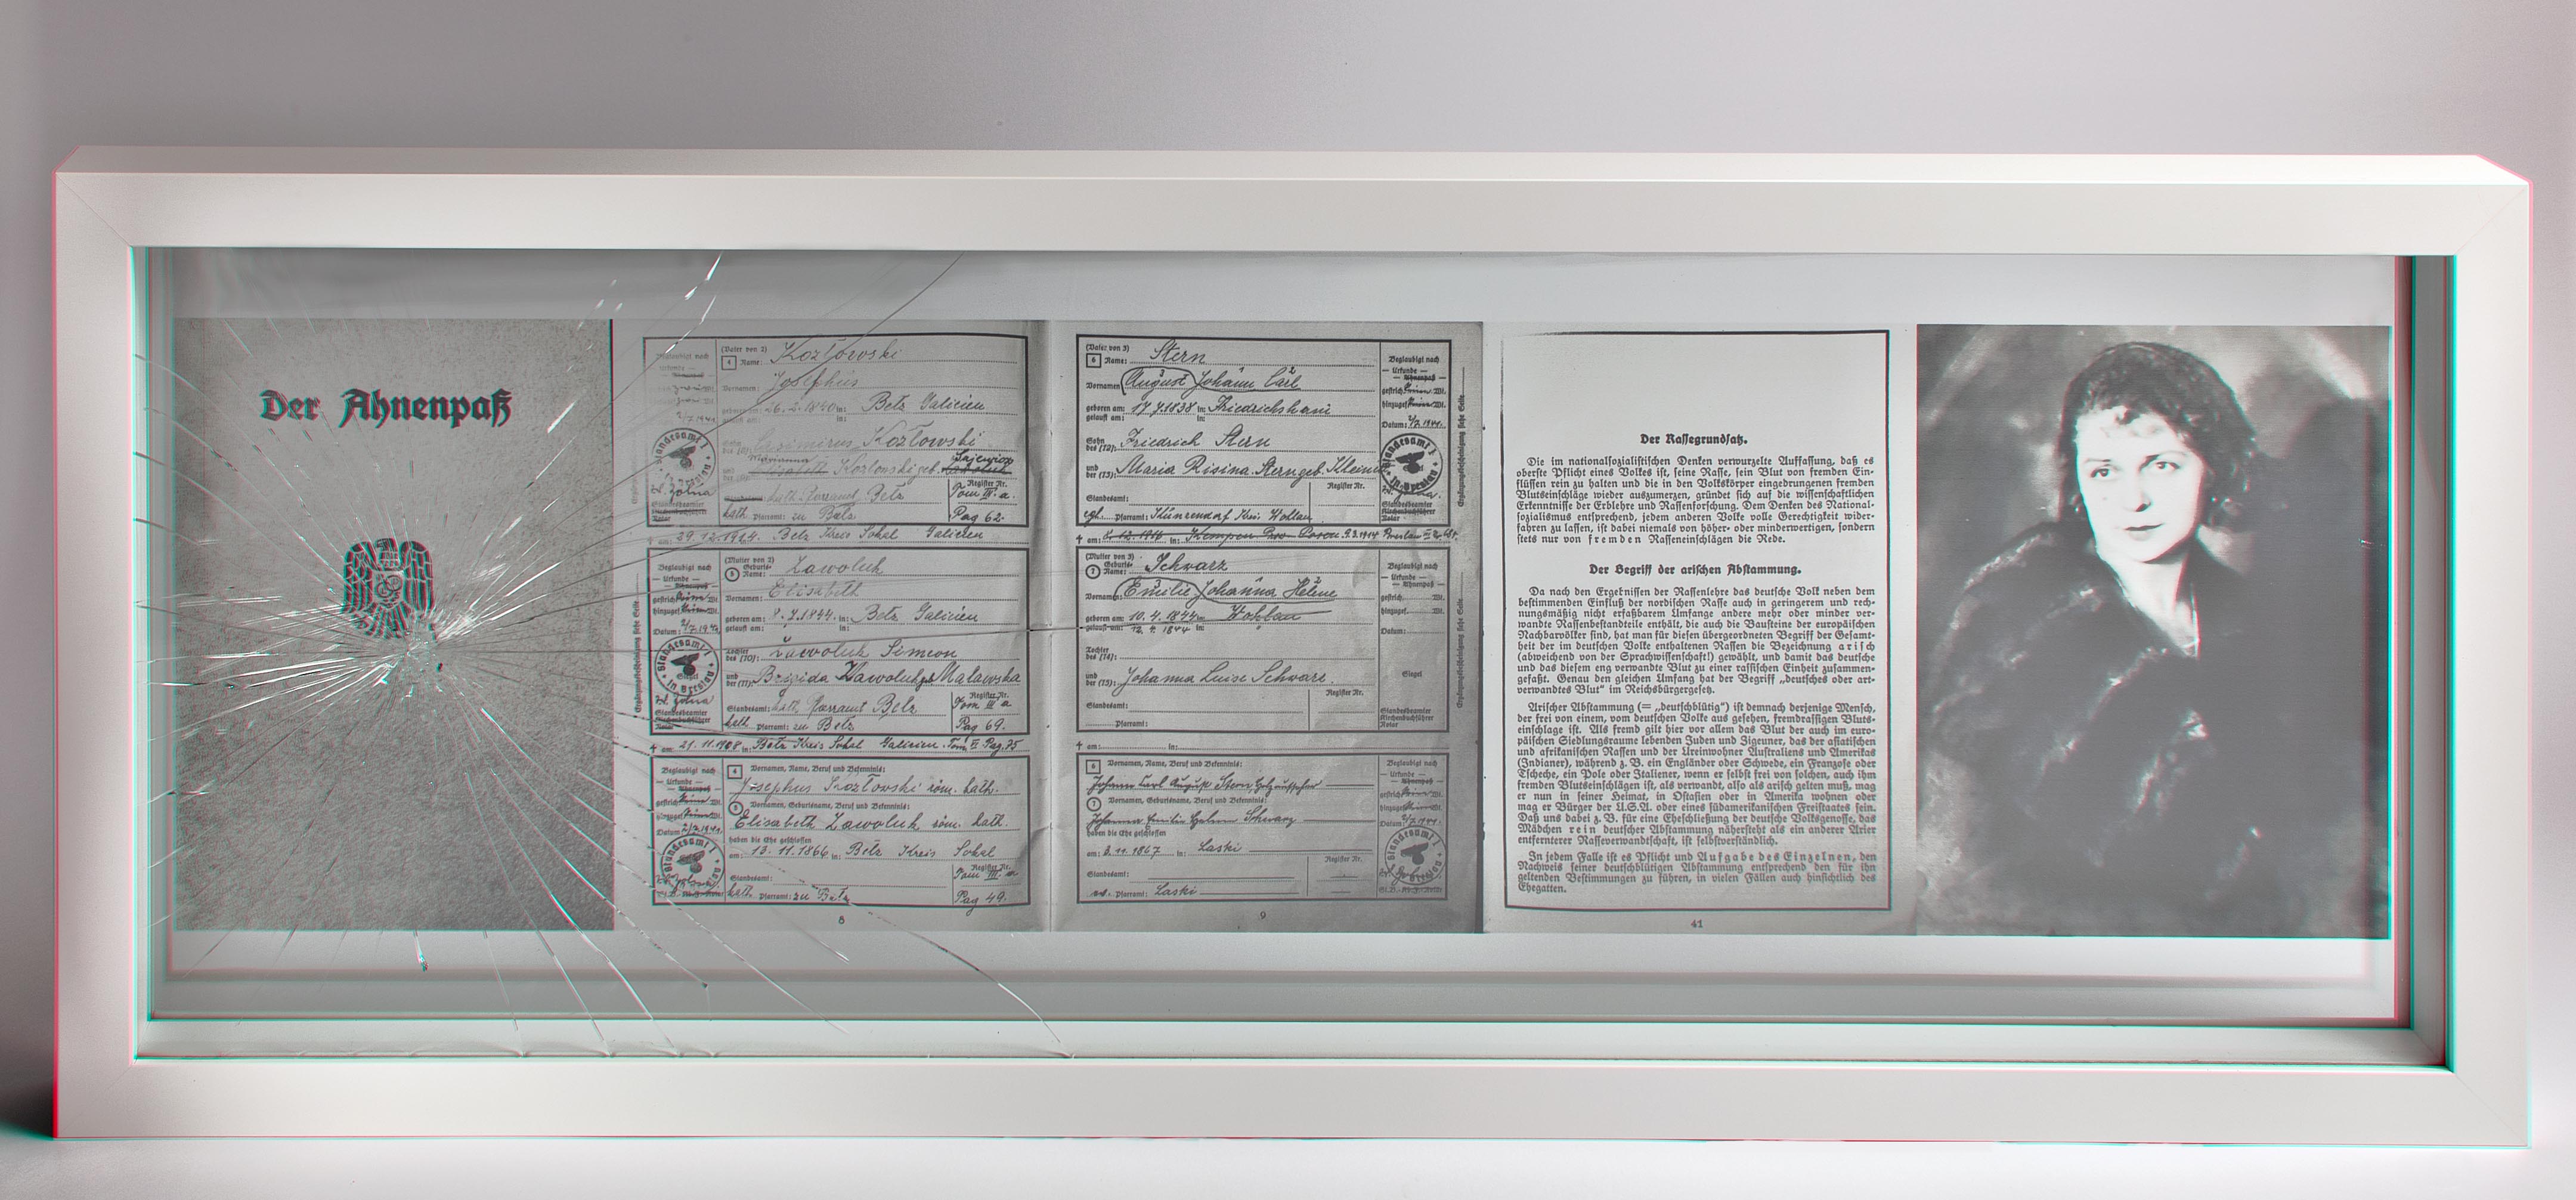 Der Ahnenpaß
Beglaubigt nach
(Vater von 2)
4 Name: Kozłowski
Vornamen: Josephus
geboren am: 26.2.1840 in: Betz Galicien
getauft am: in:
Kozłowski
Marianna
Kozlowski geb.
Register Nr.
kath. Pfarramt Betz Tom III. a.
kath. Pfarramt: zu Betz Pag 62.
† am: 29.12.1914. Betz Kreis Sokal Galicien
(Mutter von 2)
5 Geburts-Name: Zawoluk
Vornamen: Elisabeth
geboren am: 8.7.1844. in: Betz Galicien
getauft am: in:
Tochter des (10): Zawoluk Simeon
und der (11): Brigida Zawoluk Malawska
Register Nr.
Standesamt: kath. Pfarramt Betz Tom III a
kath. Pfarramt: zu Betz Pag 69.
† am: 21.11.1908 in: Betz Kreis Sokal Galicien. Tom II Pag. 75
Beglaubigt nach
— Urkunde —
— Ahnenpaß —
4 Vornamen, Name, Beruf und Bekenntnis:
Josephus Kozłowski röm. kath.
5 Vornamen, Geburtsname, Beruf und Bekenntnis:
Elisabeth Zawoluk, röm. kath.
haben die Ehe geschlossen
am: 13.11.1866 in: Betz Kreis Sokal
Register Nr.
Standesamt: Tom III. a
kath. Pfarramt: zu Betz Pag 49.
Standesamt I in Breslau
8
(Vater von 3)
6 Name: Stern
Vornamen: August Johann Carl
geboren am: 17.7.1838 in: Friedrichshain
getauft am: in:
Sohn des (12): Friedrich Stern
und der (13): Maria Rosina Stern geb. Kleine
Register Nr.
Standesamt:
Pfarramt: Künzendorf Kreis Wohlau
Beglaubigt nach
— Urkunde —
— Ahnenpaß —
(Mutter von 3)
7 Geburts-Name: Schwarz
Vornamen: Emilie Johanna Helene
geboren am: 10.4.1844 in: Wohlau
getauft am: 12.4.1844 in:
Tochter des (14):
und der (15): Johanna Luise Schwarz.
Register Nr.
Standesamt:
Pfarramt:
Beglaubigt nach
— Urkunde —
— Ahnenpaß —
Datum:
Siegel
Standesbeamter
Kirchenbuchführer
Notar
† am: in:
6 Vornamen, Name, Beruf und Bekenntnis:
Johann Carl August Stern,
7 Vornamen, Geburtsname, Beruf und Bekenntnis:
Johanna Emilie Helene Schwarz
haben die Ehe geschlossen
am: 3.11.1867 in: Laski
Register Nr.
Standesamt:
Pfarramt: Laski
Ergänzungsbescheinigung siehe Seite
9
Der Rassegrundsatz.
Die im nationalsozialistischen Denken verwurzelte Auffassung, daß es
oberste Pflicht eines Volkes ist, seine Rasse, sein Blut von fremden Ein-
flüssen rein zu halten und die in den Volkskörper eingedrungenen fremden
Blutseinschläge wieder auszumerzen, gründet sich auf die wissenschaftlichen
Erkenntnisse der Erblehre und Rassenforschung. Dem Denken des National-
sozialismus entsprechend, jedem anderen Volke volle Gerechtigkeit wider-
fahren zu lassen, ist dabei niemals von höher- oder minderwertigen, sondern
stets nur von fremden Rasseneinschlägen die Rede.
Der Begriff der arischen Abstammung.
Da nach den Ergebnissen der Rassenlehre das deutsche Volk neben dem
bestimmenden Einfluß der nordischen Rasse auch in geringerem und rech-
nungsmäßig nicht erfaßbarem Umfange andere mehr oder minder ver-
wandte Rassenbestandteile enthält, die auch die Bausteine der europäischen
Nachbarvölker sind, hat man für diesen übergeordneten Begriff der Gesamt-
heit der im deutschen Volke enthaltenen Rassen die Bezeichnung arisch
(abweichend von der Sprachwissenschaft!) gewählt, und damit das deutsche
und das diesem eng verwandte Blut zu einer rassischen Einheit zusammen-
gefaßt. Genau den gleichen Umfang hat der Begriff „deutsches oder art-
verwandtes Blut“ im Reichsbürgergesetz.
Arischer Abstammung (= „deutschblütig“) ist demnach derjenige Mensch,
der frei von einem, vom deutschen Volke aus gesehen, fremdrassigen Bluts-
einschlage ist. Als fremd gilt hier vor allem das Blut der auch im euro-
päischen Siedlungsraume lebenden Juden und Zigeuner, das der asiatischen
und afrikanischen Rassen und der Ureinwohner Australiens und Amerikas
(Indianer), während z. B. ein Engländer oder Schwede, ein Franzose oder
Tscheche, ein Pole oder Italiener, wenn er selbst frei von solchen, auch ihm
fremden Blutseinschlägen ist, als verwandt, also als arisch gelten muß, mag
er nun in seiner Heimat, in Ostasien oder in Amerika wohnen oder
mag er Bürger der U.S.A. oder eines südamerikanischen Freistaates sein.
Daß uns dabei z. B. für eine Eheschließung der deutsche Volksgenosse, das
Mädchen rein deutscher Abstammung nähersteht als ein anderer Arier
entfernterer Rasseverwandtschaft, ist selbstverständlich.
In jedem Falle ist es Pflicht und Aufgabe des Einzelnen, den
Nachweis seiner deutschblütigen Abstammung entsprechend den für ihn
geltenden Bestimmungen zu führen, in vielen Fällen auch hinsichtlich des
Ehegatten.
41